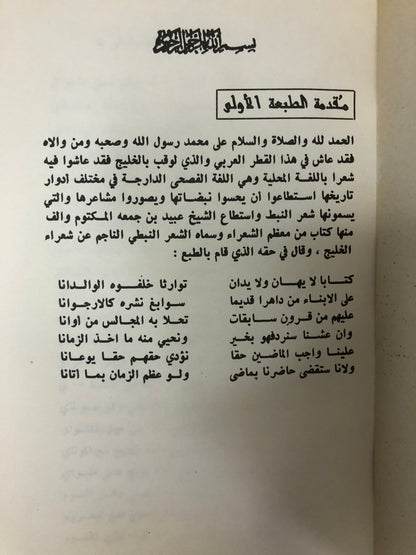 بسم الله الرحمن الرحيم
مقدمة الطبعة الأولى
الحمد لله والصلاة والسلام على محمد رسول الله وصحبه ومن والاه
فقد عاش في هذا القطر العربي والذي لوقب بالخليج فقد عاشوا فيه
شعرا باللغة المحلية وهي اللغة الفصحى الدارجة في مختلف أدوار
تاريخها استطاعوا أن يحسوا نبضاتها ويصوروا مشاعرها والتي
يسمونها شعر النبط واستطاع الشيخ عبيد بن جمعه المكتوم والف
منها كتاب من معظم الشعراء وسماه الشعر النبطي الناجم عن شعراء
الخليج ، وقال في حقه الذي قام بالطبع :
كتابا لا يهان ولا يدان توارثا خلفوه الوالدانا
على الابناء من داهرا قديما سوابغ نشره كالارجوانا
عليهم من قرون سابقات تحلا به المجالس من اوانا
وان عشنا سنردفهو بخير ونحيي منه ما اخذ الزمانا
علينا واجب الماضين حقا نؤدي حقهم حقا يوعانا
ولانا ستقضى حاضرنا بماضى ولو عظم الزمان بما اتانا